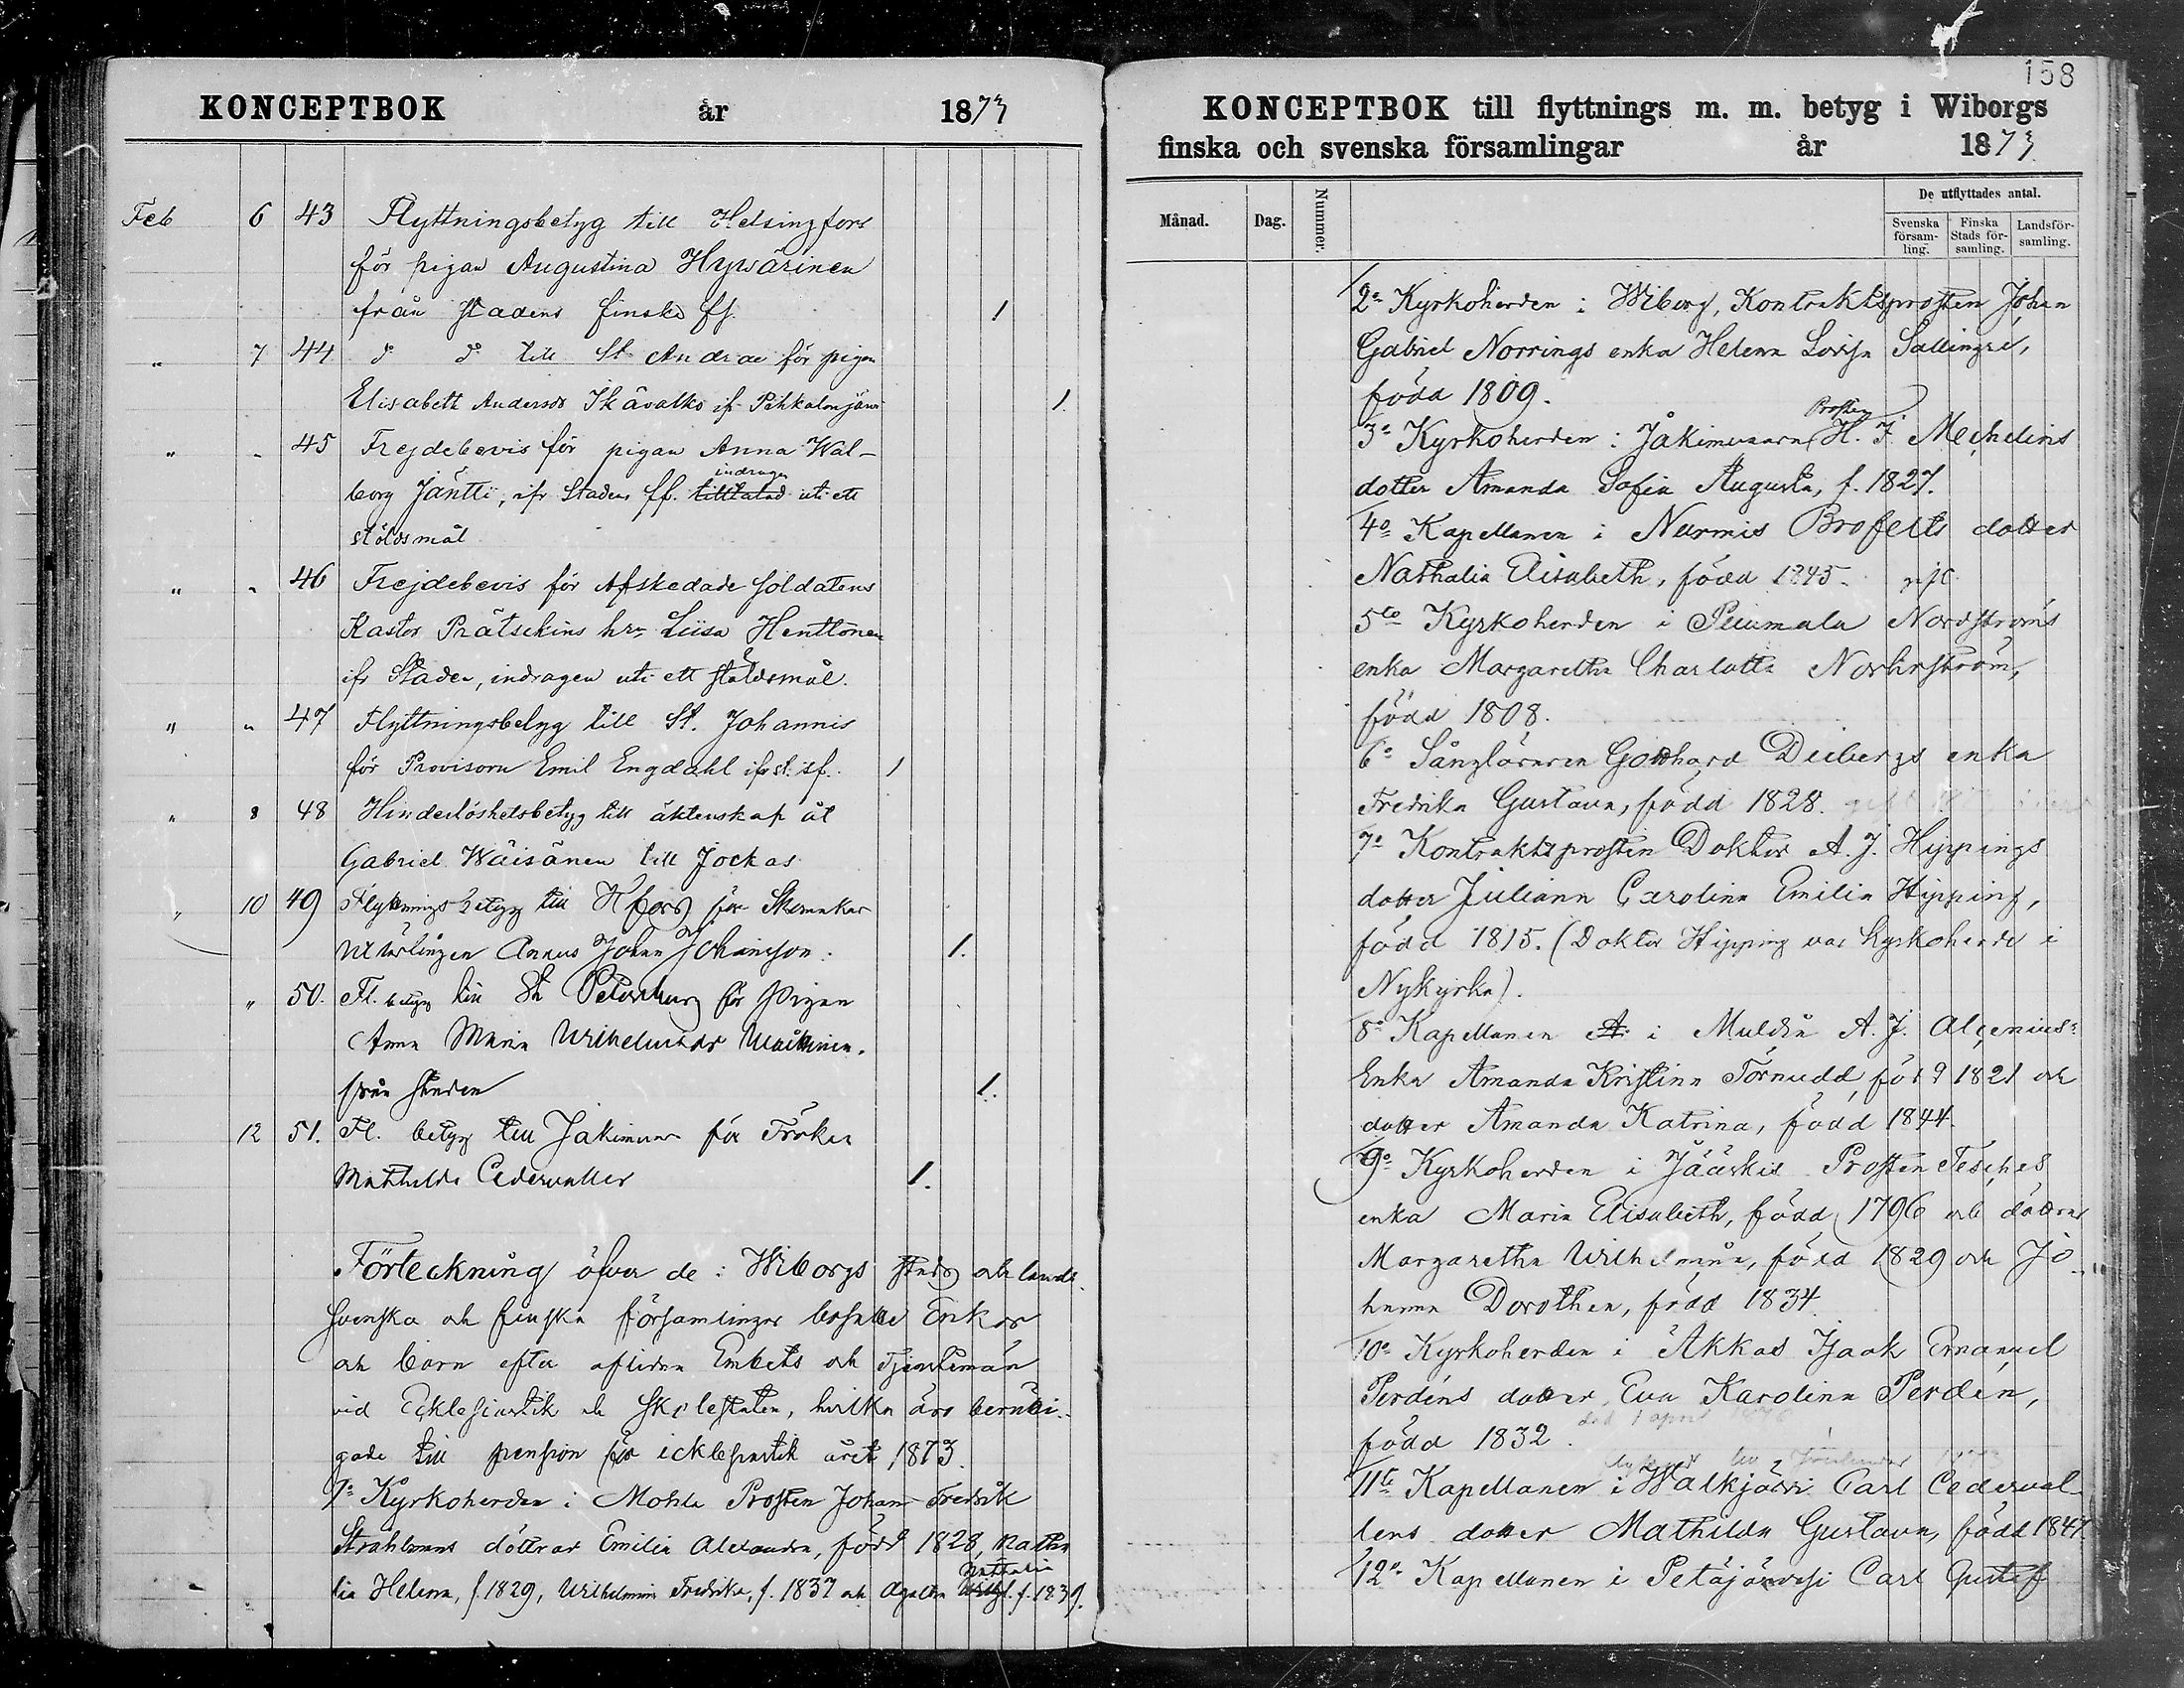 KONCEPTBOK år 1873
Feb 6 43 Flyttningsbetyg till Helsingfors
för pigan Augustina Hyvärinen
från stadens finska ff. 1
" 7 44 d:o d:o till St Andrae för pigan
Elisabeth Andersdr Ikävalko ifr Pihkalanjärvi 1.
" " 45 Frejdebevis för pigan Anna Wal-
indragen
borg Jäntti, ifr Staden ff. tilltalad uti ett
stöldsmål
" " 46 Frejdebevis för Afskedade soldatens
Kastor Prätschins hru Liisa Henttonen
ifr Staden, indragen uti ett stöldsmål.
" " 47 Flyttningsbetyg till St. Johannis
för Provisorn Emil Engdahl ifr st. sf. 1
" 8 48 Hinderlöshetsbetyg till äktenskap åt
Gabriel Wäisänen till Jockas
" 10 49 Flyttningsbetyg till Hfors för Skomakar
lärlingen Annus Johan Johansson. 1.
" 50. Fl. betyg till St Petersburg för Pigan
Anna Maria Wilhelmsdr
från staden 1.
12 51. Fl. betyg till Jakimvara för Fröken
Mathilda Cedervaller 1.
Förteckning öfver de i Wiborgs stads och lands
svenska och finska församlingar bosatta Enkor
och barn efter aflidne Embets och Tjenstemän
vid Ecklesiastik och Skolestaten, hvilka äro berätti-
gade till pension för ecklesiastik året 1873.
1:o Kyrkoherden i Mohla Prosten Johan Fredrik
Strahlmans döttrar Emilia Alexandra, född 1828, Natha
Nathalia
lia Helena, f. 1829, Wilhelmina Fredrika, f. 1837 och Agatha f. 1839.
158
KONCEPTBOK till flyttnings m. m. betyg i Wiborgs
finska och svenska församlingar år 1873
Månad. Dag. Nummer. De utflyttades antal.
Svenska försam-ling. Finska Stads för-samling. Landsför-samling.
2:o Kyrkoherden i Wiborg, Kontraktsprosten Johan
Gabriel Norrings enka Helena Lovisa Sallingré,
född 1809.
Prosten
3:o Kyrkoherden i Jakimvaara H. J. Mechelins
dotter Amanda Sofia Augusta, f. 1827.
4:o Kapellanen i Nurmis Brofelts dotter
Nathalia Elisabeth, född 1845.
5:to Kyrkoherden i Piuumala Nordströms
enka Margaretha Charlotta Norhrström,
född 1808.
6:o Sångläraren Gotthard Diebergs enka
Fredrika Gustava, född 1828.
7:o Kontraktsprosten Doktor A. J. Hippings
dotter Juliana Carolina Emilia Hipping,
född 1815. (Doktor Hipping var kyrkoherde i
Nykyrka).
8:o Kapellanen A. i Muldia A. J. Alcenius:
Enka Amanda Kristina Törnudd, född 1821 och
dotter Amanda Katrina, född 1844.
9:o Kyrkoherden i Jääskis Prosten Tesches
enka Maria Elisabeth, född 1796 och döttrar
Margaretha Wilhelmina, född 1829 och Jo-
hanna Dorothea, född 1834.
10:o Kyrkoherden i Akkas Isaak Emanuel
Perdéns dotter Eva Karolina Perdén,
född 1832. död 1 april
11:te Kapellanen i Walkjärvi Carl Cederval-
lers dotter Mathilda Gustava, född 1847
12:o Kapellanen i Petäjävesi Carl Gustaf